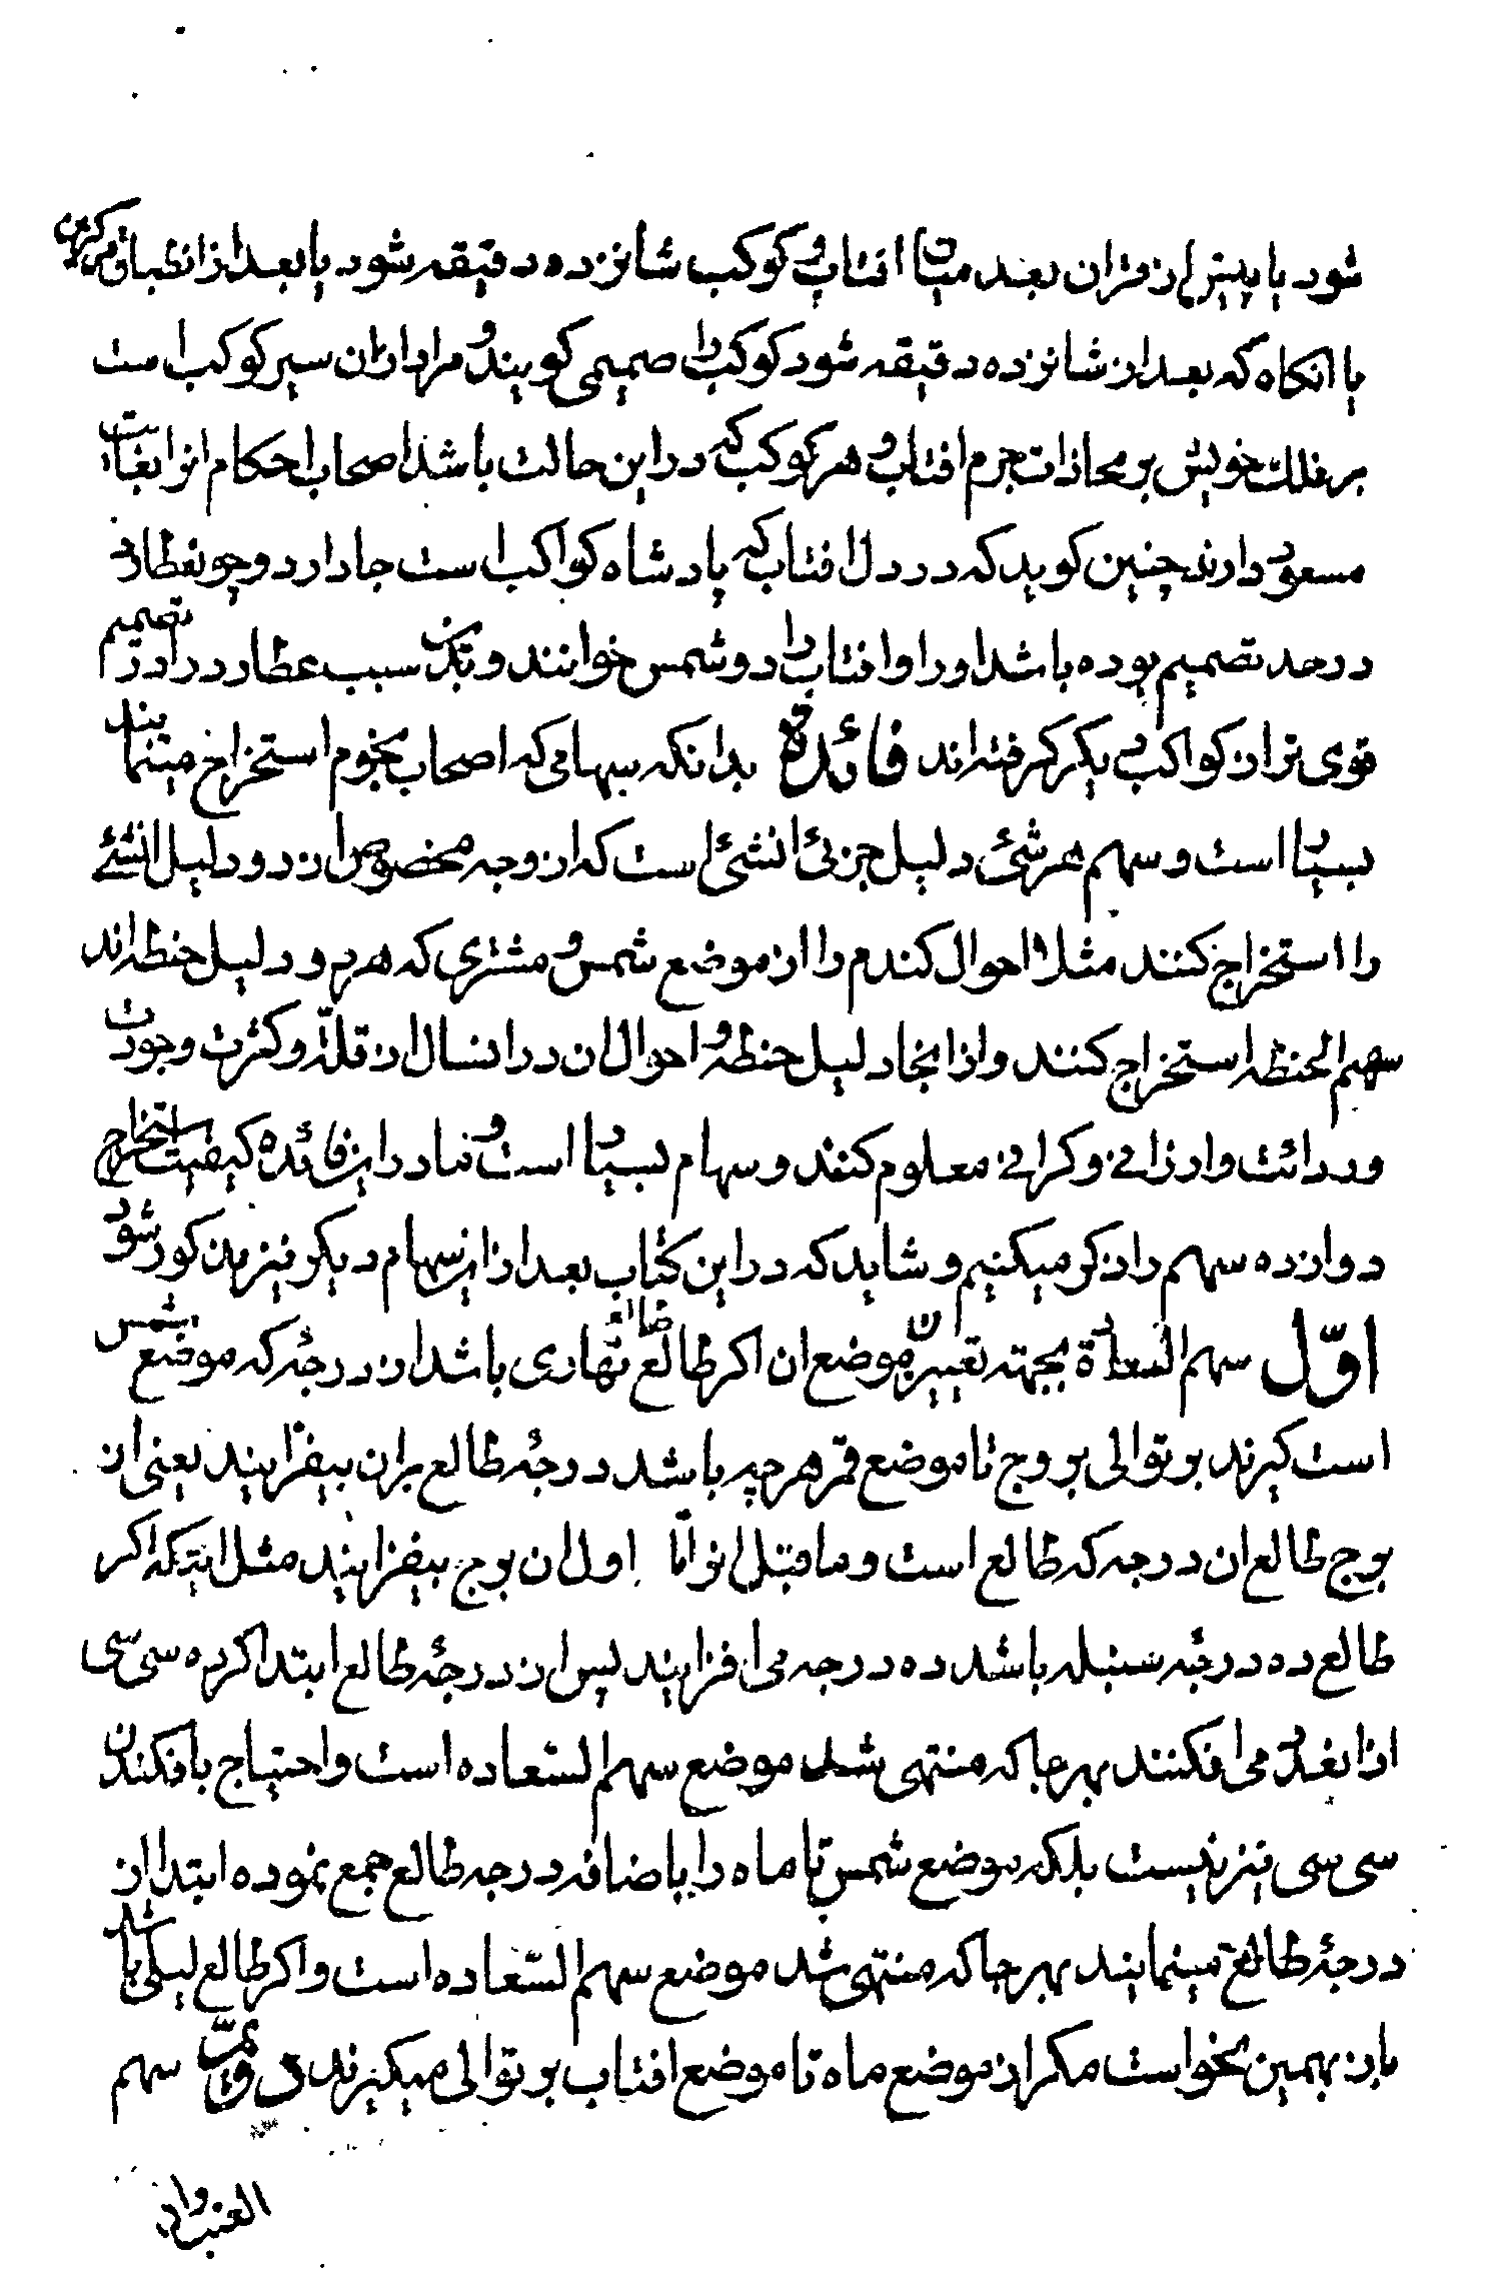 شود یا پیش از قران بعد میان افتاب و کوکب شانزده دقیقه شود یا بعد از انطباق مرکزین
یا انکاه که بعد از شانزده دقیقه شود کوکب را صمیمی کویند و مراد از ان سیر کوکب است
بر فلک خویش بر محاذات جرم افتاب و هر کوکب که در این حالت باشد اصحاب احکام انرا بغایت
مسعود دارند چنین کوید که در دل افتاب که پادشاه کواکب است جا دارد و چو نعطارد
در حد تصمیم بوده باشد او را و افتاب را دو شمس خوانند و بدین سبب عطارد را در تصمیم
قوی تر از کواکب دیکر کرفته اند فائدة بدانکه سهامی که اصحاب نجوم استخراج مینمایند
بسیار است و سهم هر شئ دلیل جزئی انشئ است که از وجه مخصوص از دو دلیل انشئ
را استخراج کنند مثلا احوال کندم را از موضع شمس و مشتری که هر دو دلیل حنطه اند
سهم الحنطه استخراج کنند و از انجا دلیل حنطه و احوال ان در انسال از قلة و کثرت وجودت
و ردائت و ارزانی و کرانی معلوم کنند و سهام بسیار است و ما در این فائده کیفیت استخراج
دوازده سهم را ذکر میکنیم و شاید که در این کتاب بعد از این سهام دیکر نیز مذکور شود
اوّل سهم السعادة بجهته تعیین موضع ان اکر طالع نهاری باشد از درجهٔ که موضع شمس
است کیرند بر توالی بروج تا موضع قمر هر چه باشد درجهٔ طالع بران بیفزایند یعنی از
برج طالع ان درجه که طالع است و ما قبل انرا تا اول ان برج بیفزایند مثل اینکه اکر
طالع ده درجهٔ سنبله باشد ده درجه می افزایند پس از درجهٔ طالع ابتدا کرده سی سی
از انعدد می افکنند بهر جا که منتهی شد موضع سهم السّعاده است و احتیاج بافکندن
سی سی نیز نیست بلکه موضع شمس تا ماه را باضافه درجه طالع جمع نموده ابتدا از
درجهٔ طالع مینمایند بهر جا که منتهی شد موضع سهم السّعاده است و اکر طالع لیلی باشد
باز بهمین نحواست مکر از موضع ماه تا موضع افتاب بر توالی میکیرند دویّم سهم
الغیب و از